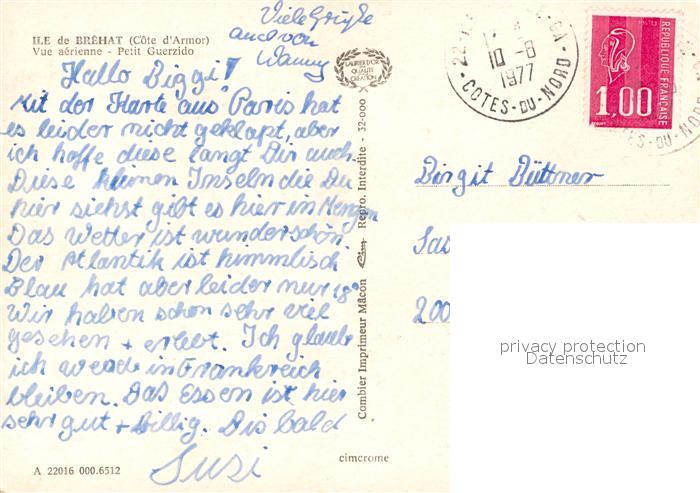 ILE de BRÉHAT (Côte d'Armor)
Vue aérienne - Petit Guerzido
Viele Grüße
auch von
Hallo Biggi!
Mit der Karte aus Paris hat
es leider nicht geklapt, aber
ich hoffe diese langt Dir auch.
Diese kleinen Inseln die Du
hier siehst gibt es hier in Mengen
Das Wetter ist wunderschön
Der Atlantik ist himmlisch
Blau hat aber leider nur 18°
Wir haben schon sehr viel
gesehen + erlebt. Ich glaube
ich werde in Frankreich
bleiben. Das Essen ist hier
sehr gut + billig. Bis bald
Susi
A 22016 000.6512
cimcrome
LAURIER D'OR
DE LA
QUALITÉ
CREATION
Combier Imprimeur Mâcon Cim Repro. Interdite - 32-000
22
10-8
1977
COTES-DU-NORD
REPUBLIQUE FRANÇAISE
1,00
ES-DU-NORD
Birgit Büttner
200
privacy protection
Datenschutz